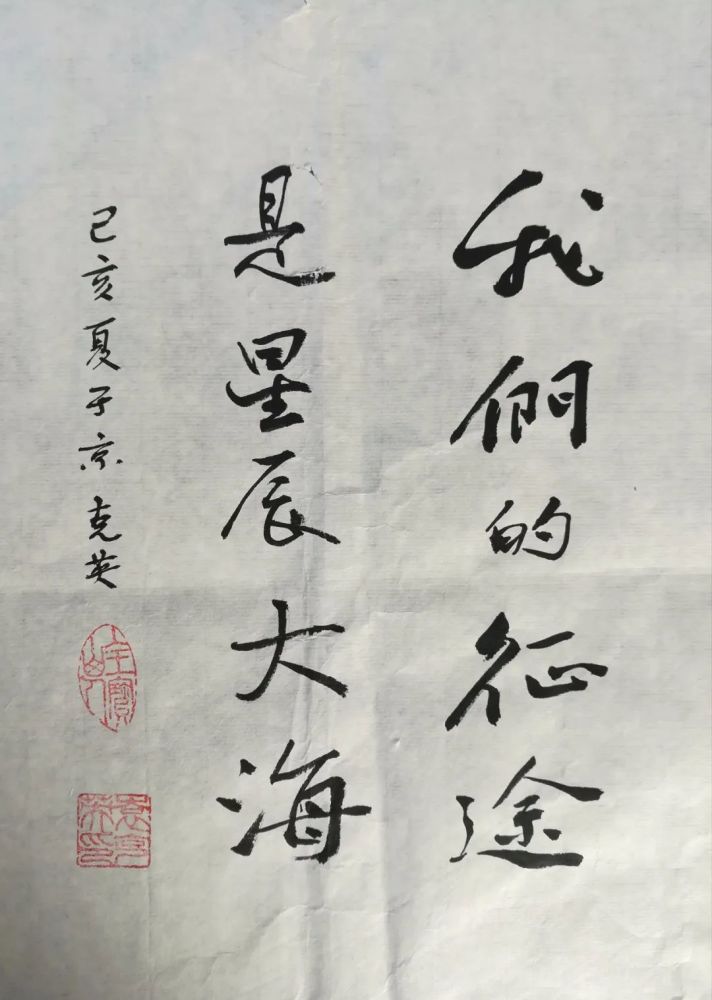 我們的征途
是星辰大海
己亥夏于京 克英